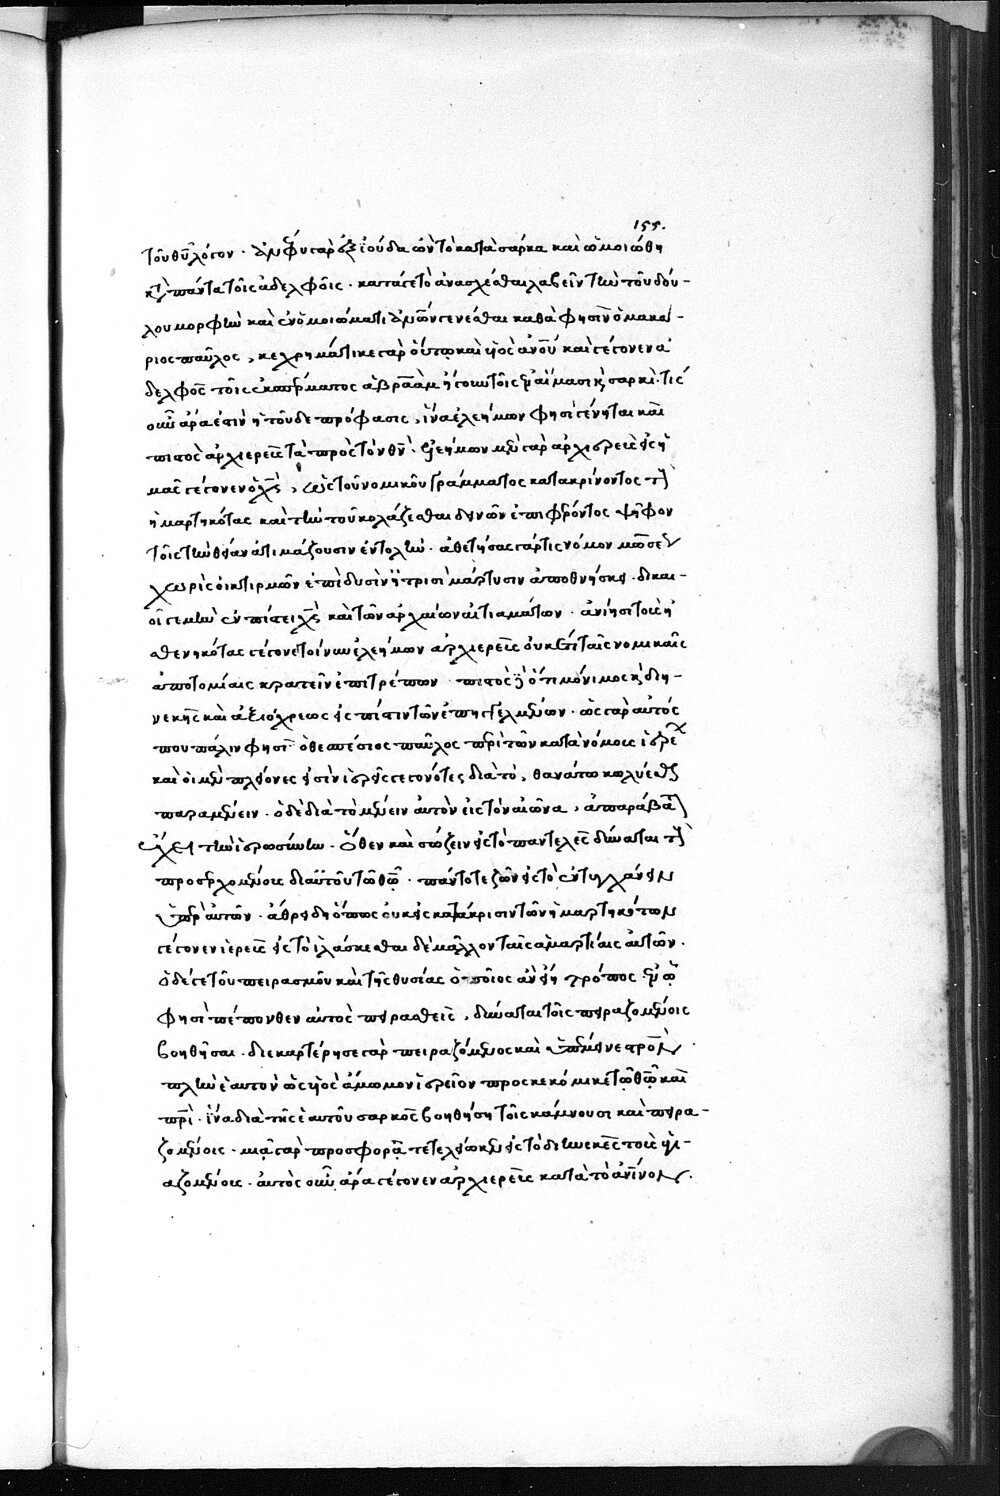 155.
τοῦ θῦ λόγον . ἀνέφυ γὰρ ἐξ ἰούδα ὧν τὸ κατὰ σάρκα καὶ ὡμοιώθη
κατὰ πάντα τοῖς ἀδελφοῖς . κατά γε τὸ ἀνασχέσθαι λαβεῖν τὴν τοῦ δού-
λου μορφὴν καὶ ἐν ὁμοιώματι ἀνῶν γενέσθαι καθὰ φησὶν ὁ μακά-
ριος παῦλος , κεχρημάτικε γὰρ οὕτω καὶ υἱὸς ἀνοῦ καὶ γέγονεν ἀ
δελφὸς τοῖς ἐκ σπέρματος ἀβραὰμ ἤγουν τοῖς ἐξ αἵματος κ σαρκὶ . τίς
οὖν ἄρα ἐστὶν ἡ τοῦδε πρόφασις , ἵνα ἐλεήμων φησὶ γένηται καὶ
πιστὸς ἀρχιερεὺς τὰ πρὸς τὸν θν . ἐλεήμων μὲν γὰρ ἀρχιερεὺς εἰς ἡ
μᾶς γέγονεν ὁ χς , ὡς τοῦ νομικοῦ γράμματος κατακρίνοντος τοὺς
ἡμαρτηκότας καὶ τὴν τοῦ κολάζεσθαι δεινῶν ἐπιφέροντος ψῆφον
τοῖς τὴν θείαν ἀτιμάζουσιν ἐντολήν . ἀθετήσας γάρ τις νόμον μωσέως
χωρὶς οἰκτιρμῶν ἐπὶ δυσὶν ἢ τρισὶ μάρτυσιν ἀποθνήσκει . δικαι-
οῖ γε μὴν ἐν πίστει χς καὶ τῶν ἀρχαίων αἰτιαμάτων . ἀνίησι τοὺς ἠ
σθενηκότας γέγονε τοίνυν ἐλεήμων ἀρχιερεὺς οὐκ ἔτι ταῖς νομικαῖς
ἀποτομίαις κρατεῖν ἐπιτρέπων . πιστὸς δὲ ὅτι μόνιμος κ διη-
νεκὴς καὶ ἀξιόχρεως εἰς πίστιν τῶν ἐπηγγελμένων . ὡς γὰρ αὐτός
που πάλιν φησὶν ὁ θεσπέσιος παῦλος περὶ τῶν κατὰ νόμους ἱερέων
καὶ οἱ μὲν πλείονές εἰσιν ἱερεῖς γεγονότες διὰ τὸ , θανάτω κωλύεσθαι
παραμένειν . ὁ δὲ διὰ τὸ μένειν αὐτὸν εἰς τὸν αἰῶνα , ἀπαράβατον
ἔχει τὴν ἱερωσύνην . ὅθεν καὶ σώζειν εἰς τὸ παντελὲς δύναται τοὺς
προσερχομένους δι' αὐτοῦ τῶ θω . πάντοτε ζῶν εἰς τὸ ἐντυγχάνειν
ὑπὲρ αὐτῶν . ἄθρει δὴ ὅπως οὐκ εἰς κατάκρισιν τῶν ἡμαρτηκότων
γέγονεν ἱερεὺς εἰς τὸ ἱλάσκεσθαι δὲ μᾶλλον ταῖς ἁμαρτίαις αὐτῶν .
ὁ δέ γε τοῦ πειρασμοῦ καὶ τῆς θυσίας ὁποῖος ἂν εἴη τρόπος . ἐν ᾧ
φησὶ πέπονθεν αὐτὸς πειρασθεὶς , δύναται τοῖς πειραζομένοις
βοηθῆσαι . διεκαρτέρησε γὰρ πειραζόμενος καὶ ὑπέμεινε τρόπον .
πλὴν ἑαυτὸν ὡς υἱὸς ἄμωμον ἱερεῖον προσκεκόμικε τῶ θω καὶ
πρὶ . ἵνα διὰ τῆς ἑαυτοῦ σαρκὸς βοηθήση τοῖς κάμνουσι καὶ πειρα-
ζομένοις . μιᾷ γὰρ προσφορᾷ τετελείωκεν εἰς τὸ διηνεκὲς τοὺς ἁγι-
αζομένους . αὐτὸς οὖν ἄρα γέγονεν ἀρχιερεὺς κατὰ τὸ ἀνινον .